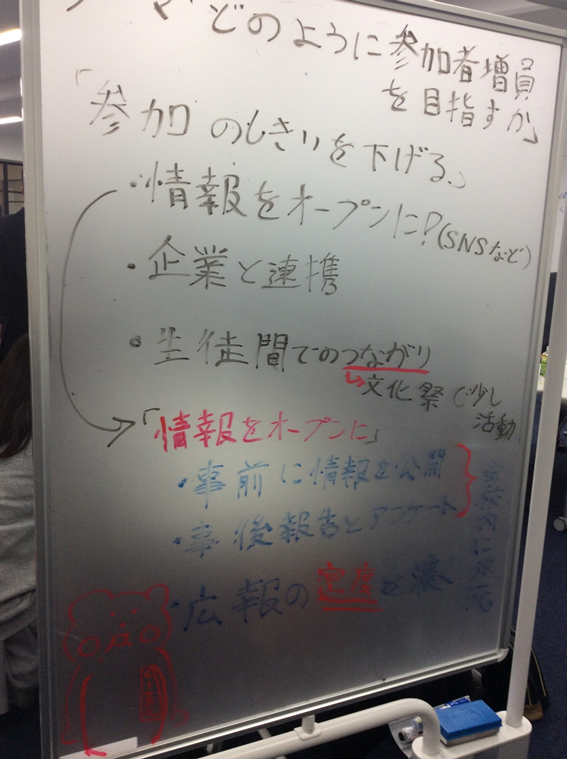 どのように参加者増員
を目指すか」
「参加のしきいを下げる。」
・情報をオープンに?(SNSなど)
・企業と連携
・生徒間でのつながり
↳文化祭で少し
活動
→「情報をオープンに」
・事前に情報を公開
・事後報告とアンケート
・広報の密度を濃く